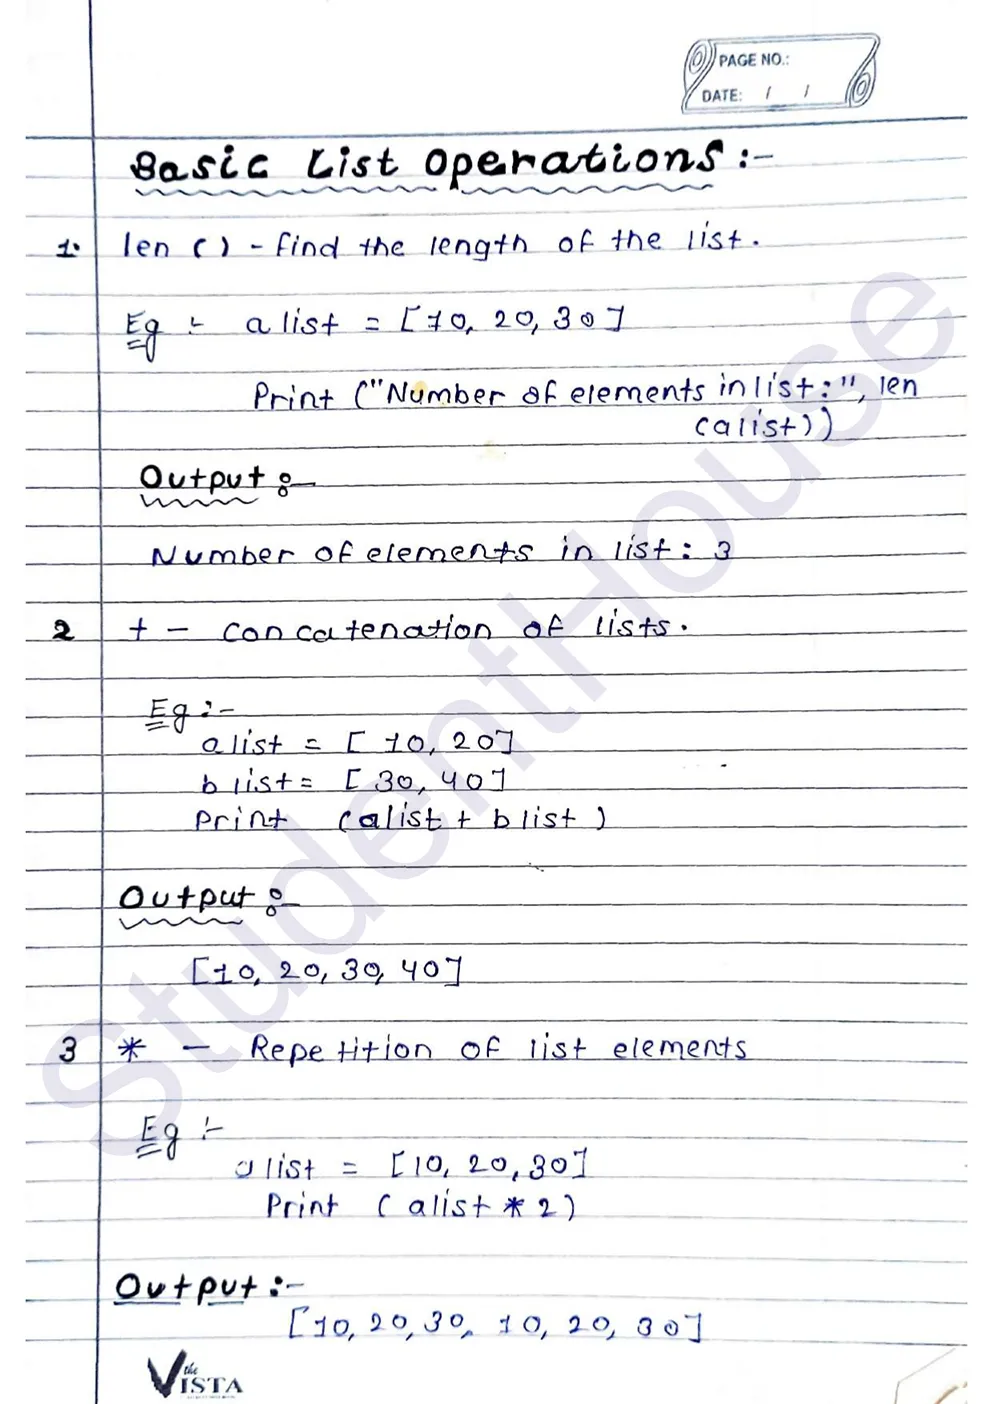 PAGE NO.:
DATE: / /
Basic List Operations :-
1. len ( ) - find the length of the list.
Eg :- alist = [10, 20, 30]
Print ("Number of elements in list:", len
(alist))
Output :-
Number of elements in list: 3
2 + - Concatenation of lists.
Eg :-
alist = [10, 20]
blist = [30, 40]
Print (alist + blist)
Output :-
[10, 20, 30, 40]
3 * - Repetition of list elements
Eg :-
alist = [10, 20, 30]
Print (alist * 2)
Output :-
[10, 20, 30, 10, 20, 30]
the VISTA
StudentHouse